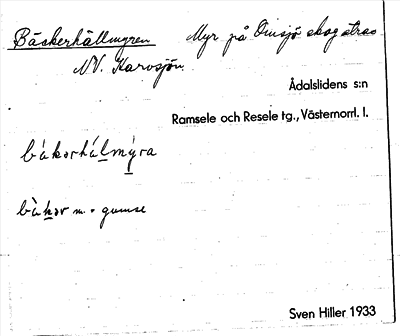 Bäskerhällmyren Myr på Omsjö skog strax
NV. Karvsjön
Ådalslidens s:n
Ramsele och Resele tg., Västernorrl. l.
bàkərhálmỳra
bàkər m. = gumse
Sven Hiller 1933